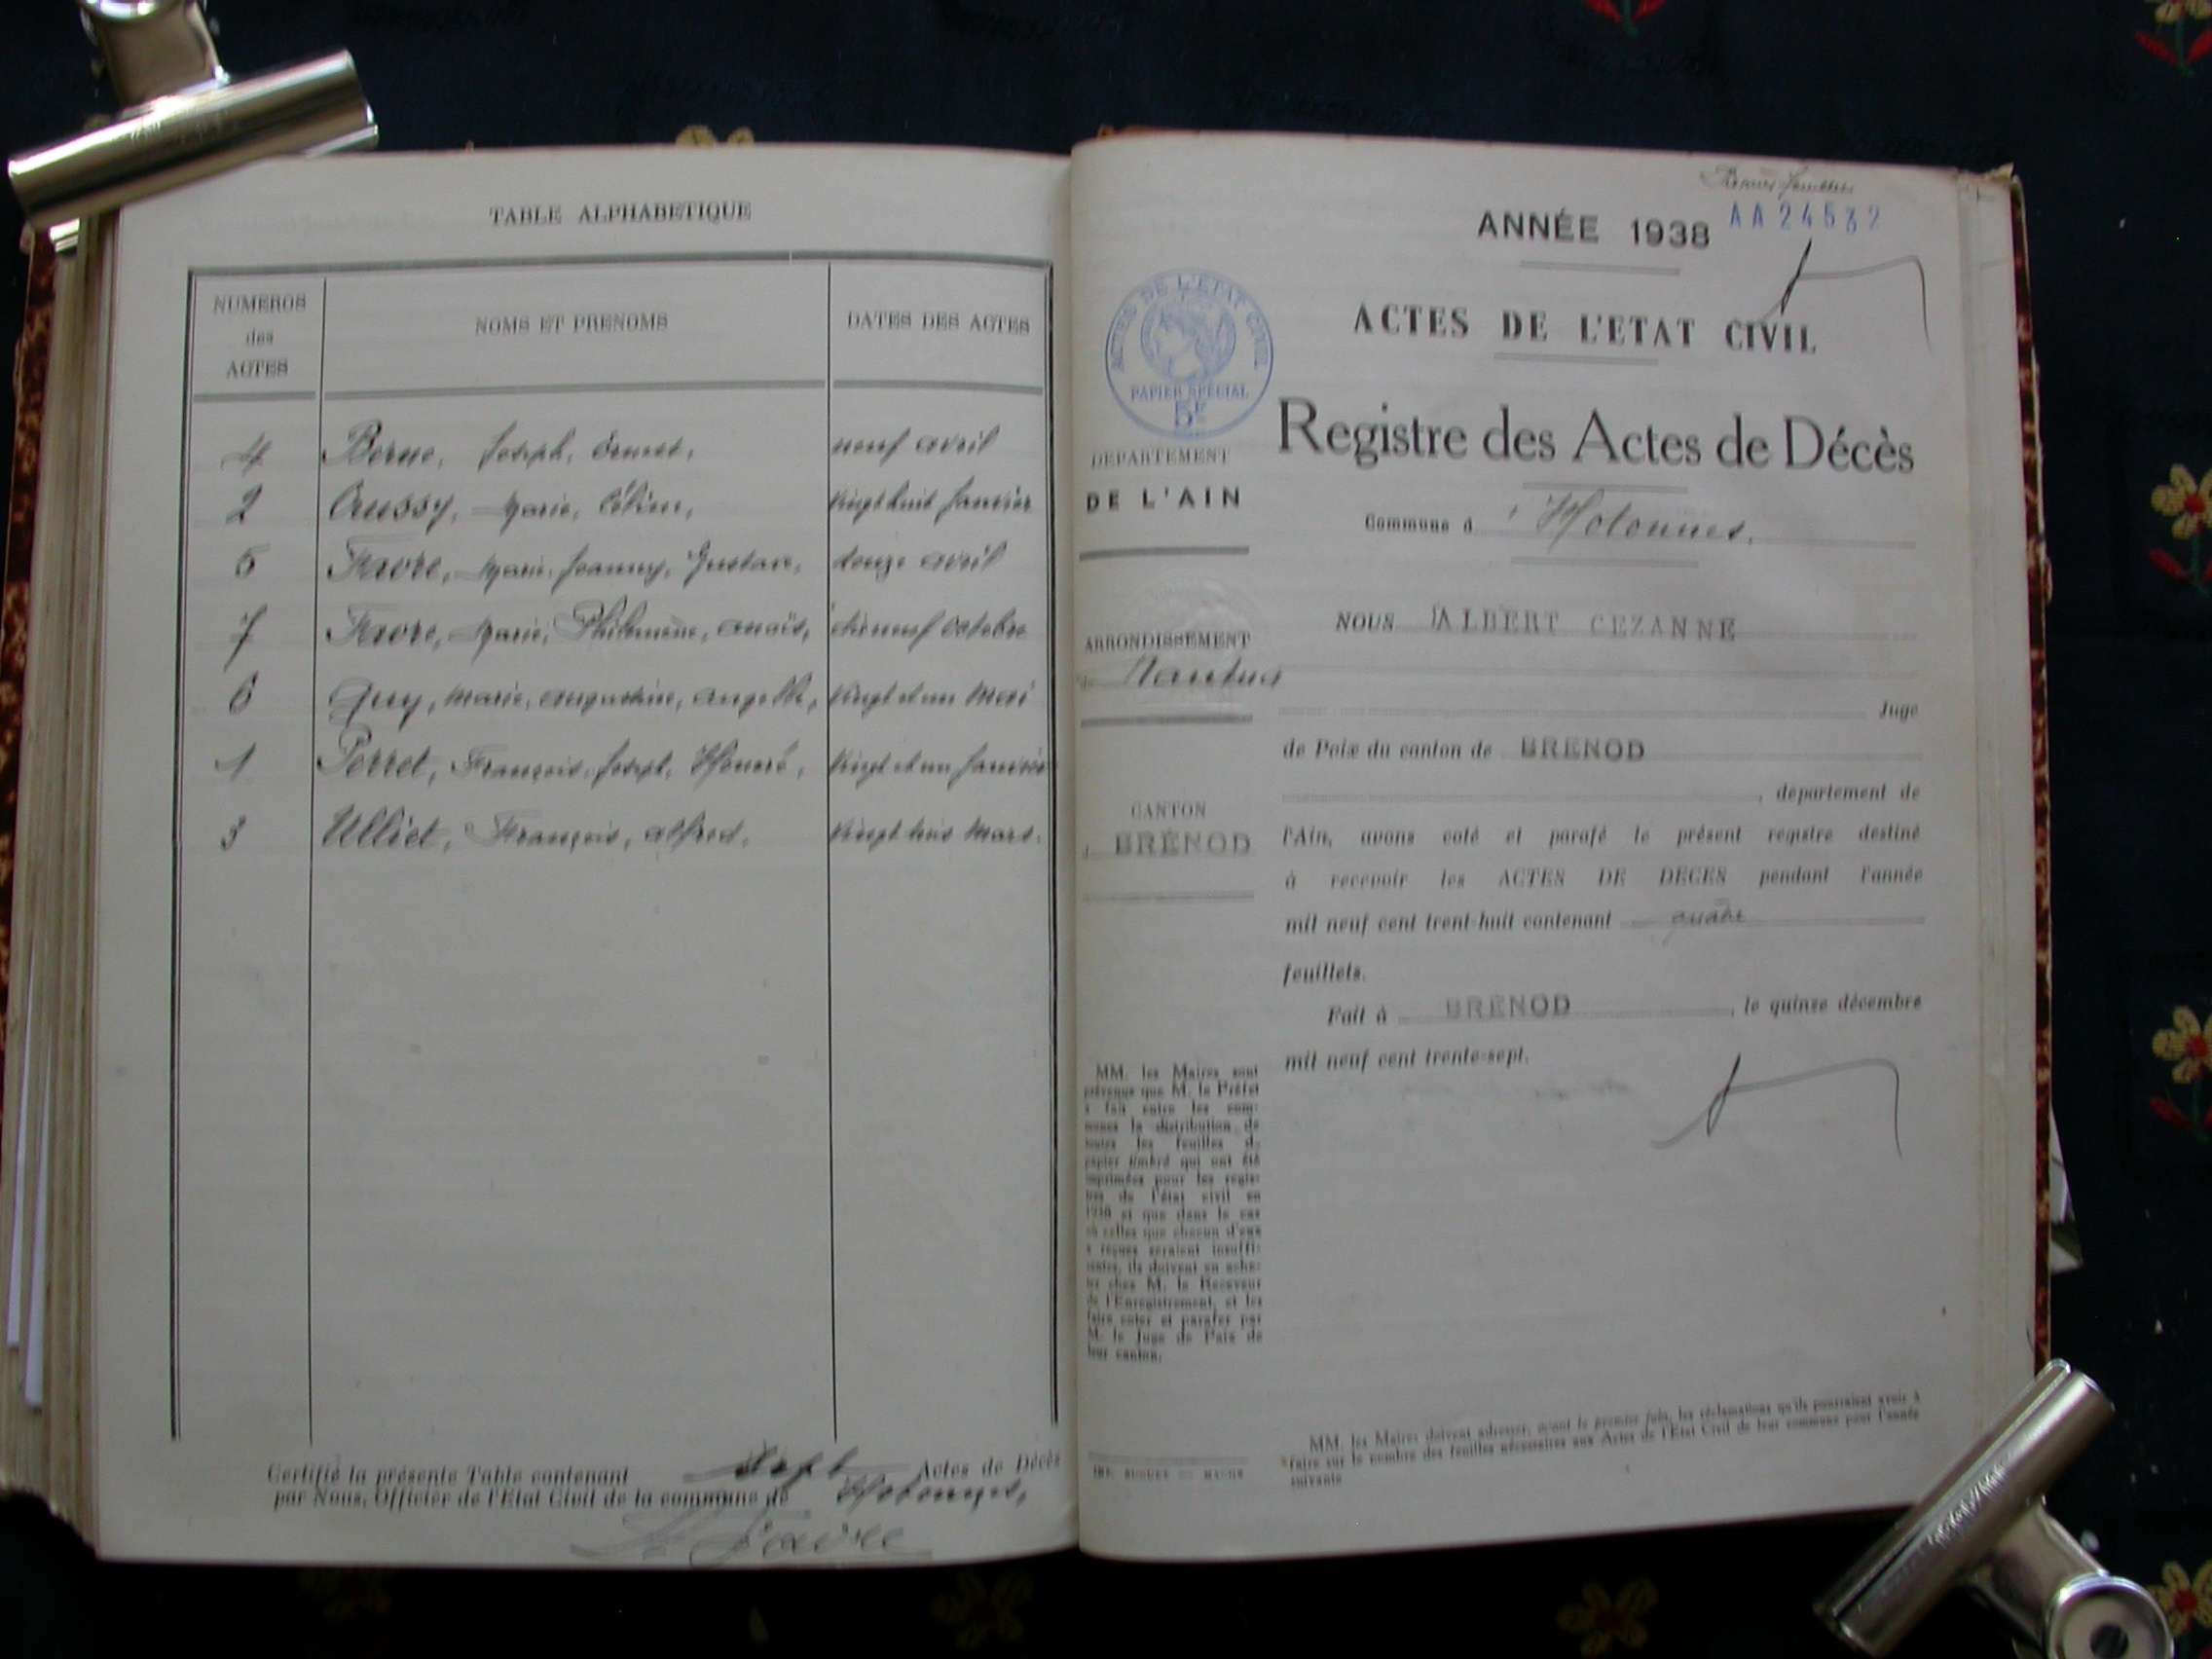 TABLE ALPHABETIQUE
NUMEROS
des
ACTES
NOMS ET PRENOMS
DATES DES ACTES
4 Berne, Joseph, Ernest, neuf avril
2 Cussy, Marie, vingt huit Janvier
5 Favre, Marie, Joanny, Gustave, douze avril
7 Favre, Marie, Philomène, Anaïs, dix neuf octobre
6 Guy, Marie, Augustine, Angèle, vingt et un Mai
1 Perret, François, Joseph, Honoré, vingt et un Janvier
3 Ulliet, François, Alfred, vingt trois Mars.
Certifié la présente Table contenant sept Actes de Décès
par Nous, Officier de l'Etat Civil de la commune de Hotonnes,
Favre
AA24532
ANNÉE 1938
ACTES DE L'ETAT CIVIL
PAPIER SPECIAL
5F
ACTES DE L'ETAT CIVIL
Registre des Actes de Décès
DEPARTEMENT
DE L'AIN
Commune d'Hotonnes.
ARRONDISSEMENT
de Nantua
CANTON
d BRÉNOD
NOUS ALBERT CEZANNE
Juge
de Paix du canton de BRENOD
, département de
l'Ain, avons coté et parafé le présent registre destiné
à recevoir les ACTES DE DECES pendant l'année
mil neuf cent trent-huit contenant quatre
feuillets.
Fait à BRENOD, le quinze décembre
mil neuf cent trente-sept.
MM. les Maires sont
prévenus que M. le Préfet
a fait entre les com-
munes la distribution de
toutes les feuilles de
papier timbré qui ont été
imprimées pour les regis-
tres de l'état civil en
1938 et que dans le cas
où celles que chacun d'eux
a reçues seraient insuffi-
santes, ils doivent en ache-
ter chez M. le Receveur
de l'Enregistrement, et les
faire coter et parafer par
M. le Juge de Paix de
leur canton.
MM. les Maires doivent adresser, avant le premier juin, les réclamations qu'ils pourraient avoir à
faire sur le nombre des feuilles nécessaires aux Actes de l'Etat Civil de leur commune pour l'année
suivante